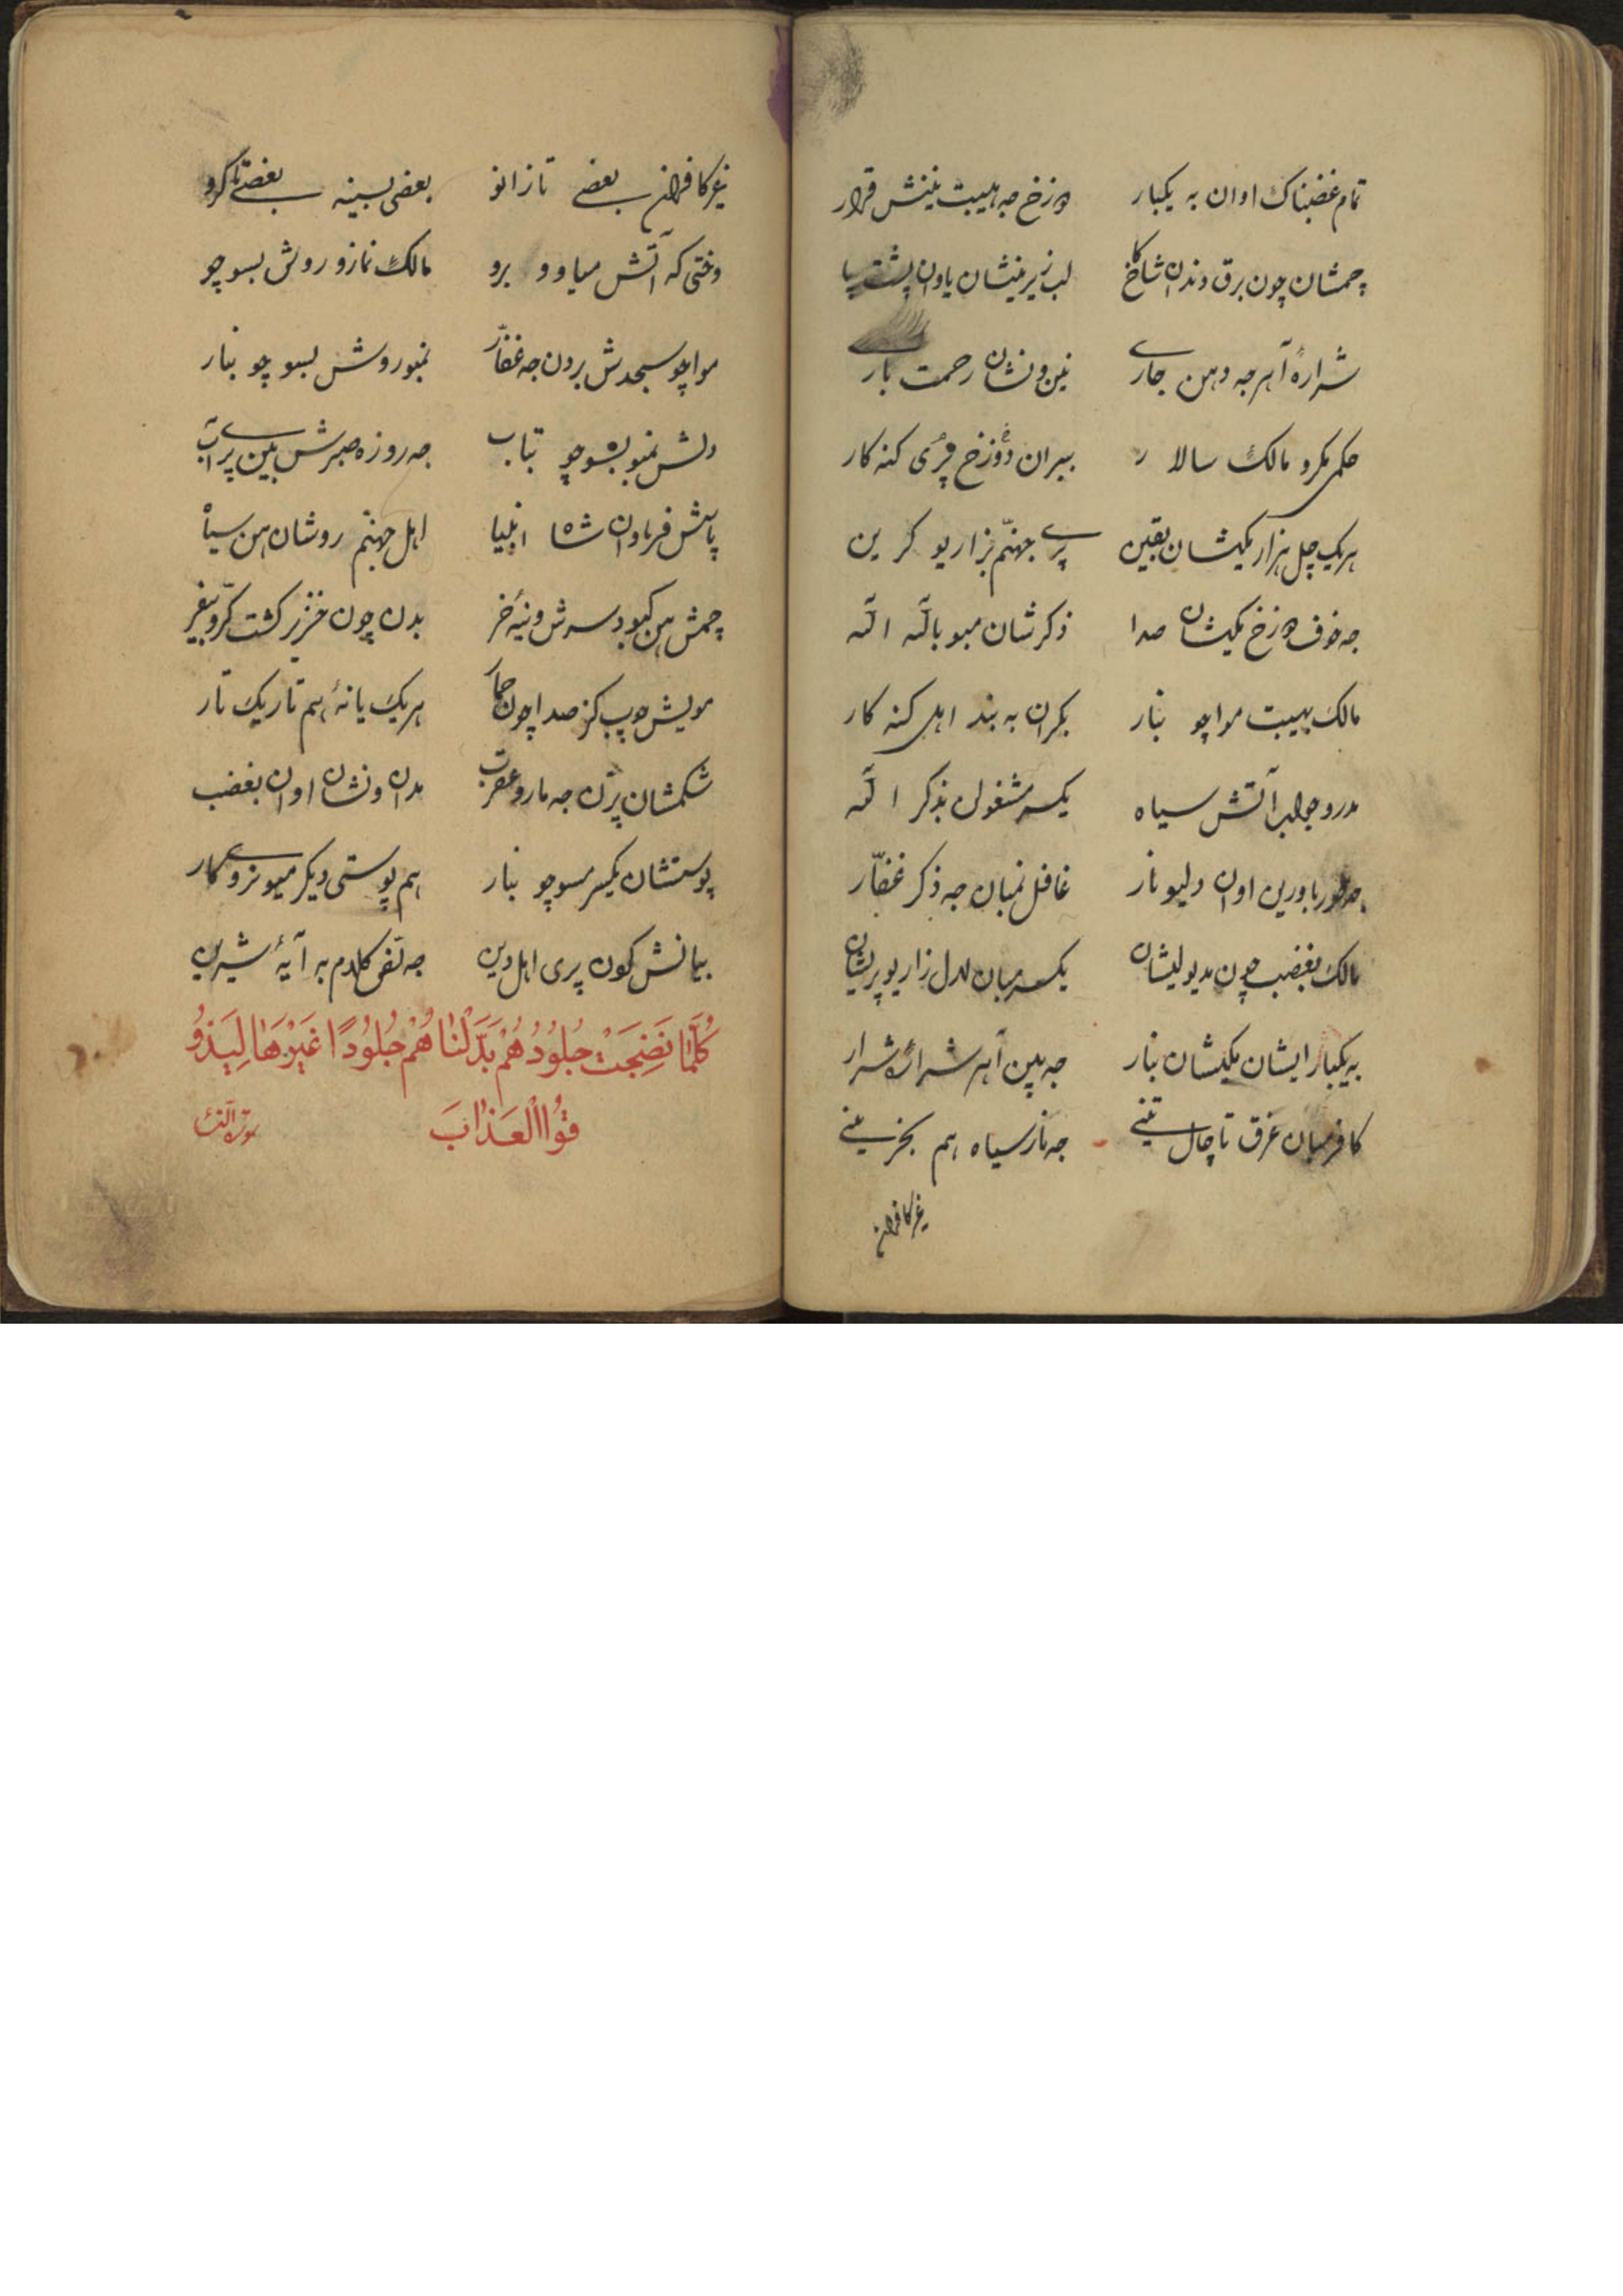 تمام غضبناک اوان به یکبار دوزخ جه هیبت نینش قرار
چمشان چون برق دندان شاخ لب زیرینشان یاوان پشت پا
شرارهٔ آهر جه دهن جاری نین ونشان رحمت باری
حکمی مکرو مالک سالار بیران دوزخ پری کنه کار
هریک چل هزار مکیشان یقین پری جهنّم بزاریو کرین
جه خوف دوزخ مکیشان صدا ذکرشان مبو باللّه اللّه
مالک بهیبت مواچو بنار بکران به بند اهل کنه کار
مدرو جواب آتش سیاه یکسر مشغولن بذکر اللّه
باورین اوان ولیو نار غافل نمبان جه ذکر غفّار
مالک بغضب چون مدیولیشان یکسر مبان لدل زاریو پریشان
به یکبار ایشان مکیشان بنار جه بین آهر شراره شرار
کافر مبان غرق تا چال تینی جه نار سیاه هم بخر ینی
غیر کافران
غیر کافران بعضی تا زانو بعضی بسینه بعضی تا کرو
وختی که آتش میاوو برو مالک نمازو روش بسوچو
مواچو سجدش بردن جه غفّار نمبو روش بسوچو بنار
دلش نمبو بسوچو بتاب جه روزه صبرش بین پر آب
پاسش فرماوان شاه انبیا اهل جهنّم روشان هن سیاه
چمش هن کبود سرش وینهٔ خر بدن چون خنزر کشت کرّو بفیر
مویش چوب کز صدا چون حمار هریک یانهٔ هم تاریک تار
شکمشان پرّن جه مار و عقرب مدان ونشان اوان بغضب
پوستشان یکسر مسوچو بنار هم پوستی دیکر میو نروی کار
بیانش کون پری اهل دین جه نصّ کلام به آیهٔ شیرین
كُلَّمَا نَضِجَتْ جُلُودُهُمْ بَدَّلْنَاهُمْ جُلُودًا غَيْرَهَا لِيَذُو
قُوا الْعَذَابَ سورة النساء